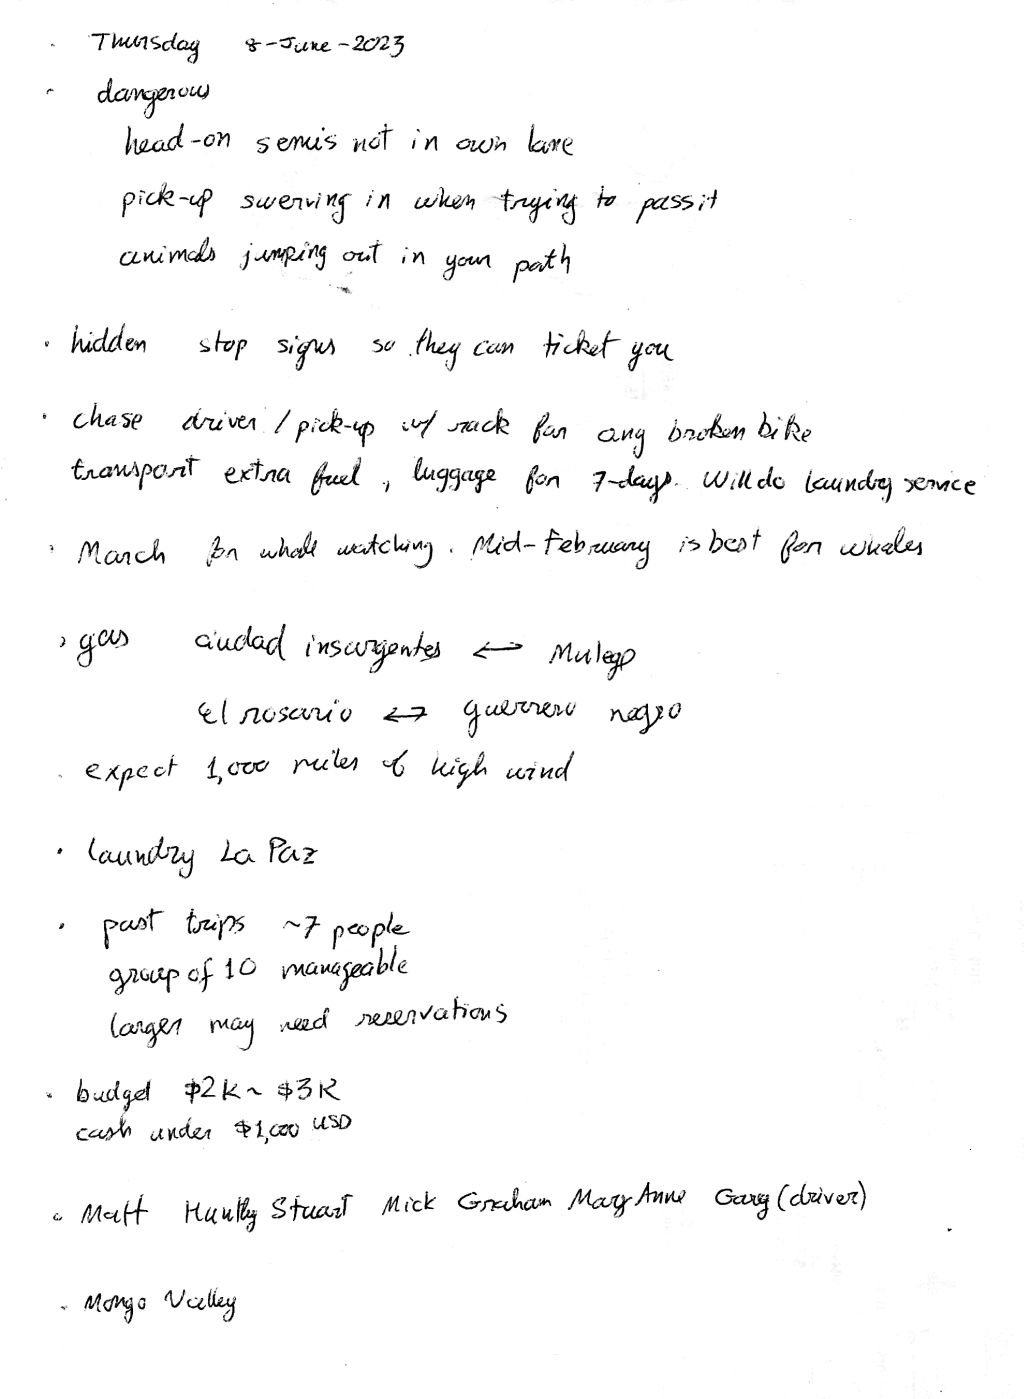 · Thursday 8-June-2023
· dangerous
head-on semis not in own lane
pick-up swerving in when trying to pass it
animals jumping out in your path
· hidden stop signs so they can ticket you
· chase driver / pick-up w/ rack for any broken bike
transport extra fuel, luggage for 7-days. Will do laundry service
· March for whale watching. Mid-February is best for whales
· gas ciudad insurgentes ↔ Mulege
El rosario ↔ guerrero negro
· expect 1,000 miles of high wind
· laundry La Paz
· past trips ~7 people
group of 10 manageable
larger may need reservations
· budget $2K ~ $3K
cash under $1,000 USD
· Matt Huntly Stuart Mick Graham Mary Anne Gary (driver)
· Mongo Valley